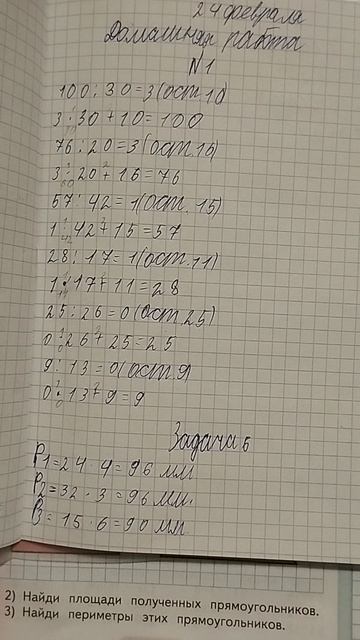 24 февраля
Домашняя работа
N 1
100 : 30 = 3 (ост. 10)
3 · 30 + 10 = 100
76 : 20 = 3 (ост. 16)
3 · 20 + 16 = 76
57 : 42 = 1 (ост. 15)
1 · 42 + 15 = 57
28 : 17 = 1 (ост. 11)
1 · 17 + 11 = 28
25 : 26 = 0 (ост. 25)
0 · 26 + 25 = 25
9 : 13 = 0 (ост. 9)
0 · 13 + 9 = 9
Задача 6
P1 = 24 · 4 = 96 мм
P2 = 32 · 3 = 96 мм.
P3 = 15 · 6 = 90 мм
2) Найди площади полученных прямоугольников.
3) Найди периметры этих прямоугольников.